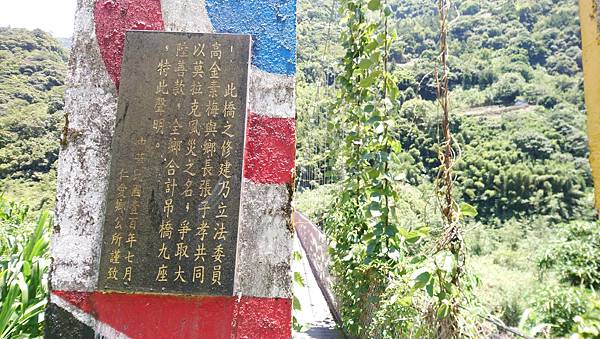 此橋之修建乃立法委員
高金素梅與鄉長張子孝共同
以莫拉克風災之名，爭取大
陸善款，全鄉合計吊橋九座
，特此聲明。
中華民國壹百年七月
仁愛鄉公所謹致